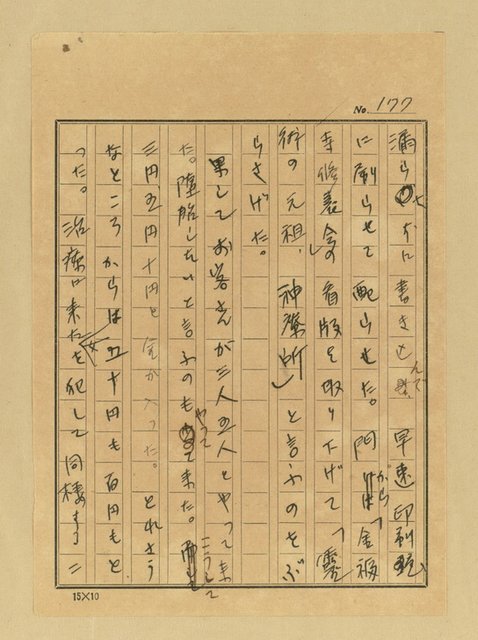 No. 177
漏らさずに書き込んで、早速印刷屋
に刷らせて配らせた。門から「金福
寺修養会」の看版を取り下げて、「霊
術の元祖、神療所」と言ふのをぶ
らさげた。
果してお客さんが三人五人とやって来
た。堕胎したいと言ふのもやって来た。こうして
三円、五円十円と金が入った。とれさう
なところからは五十円も百円もと
った。治療に来た女を犯して同棲する二
15×10